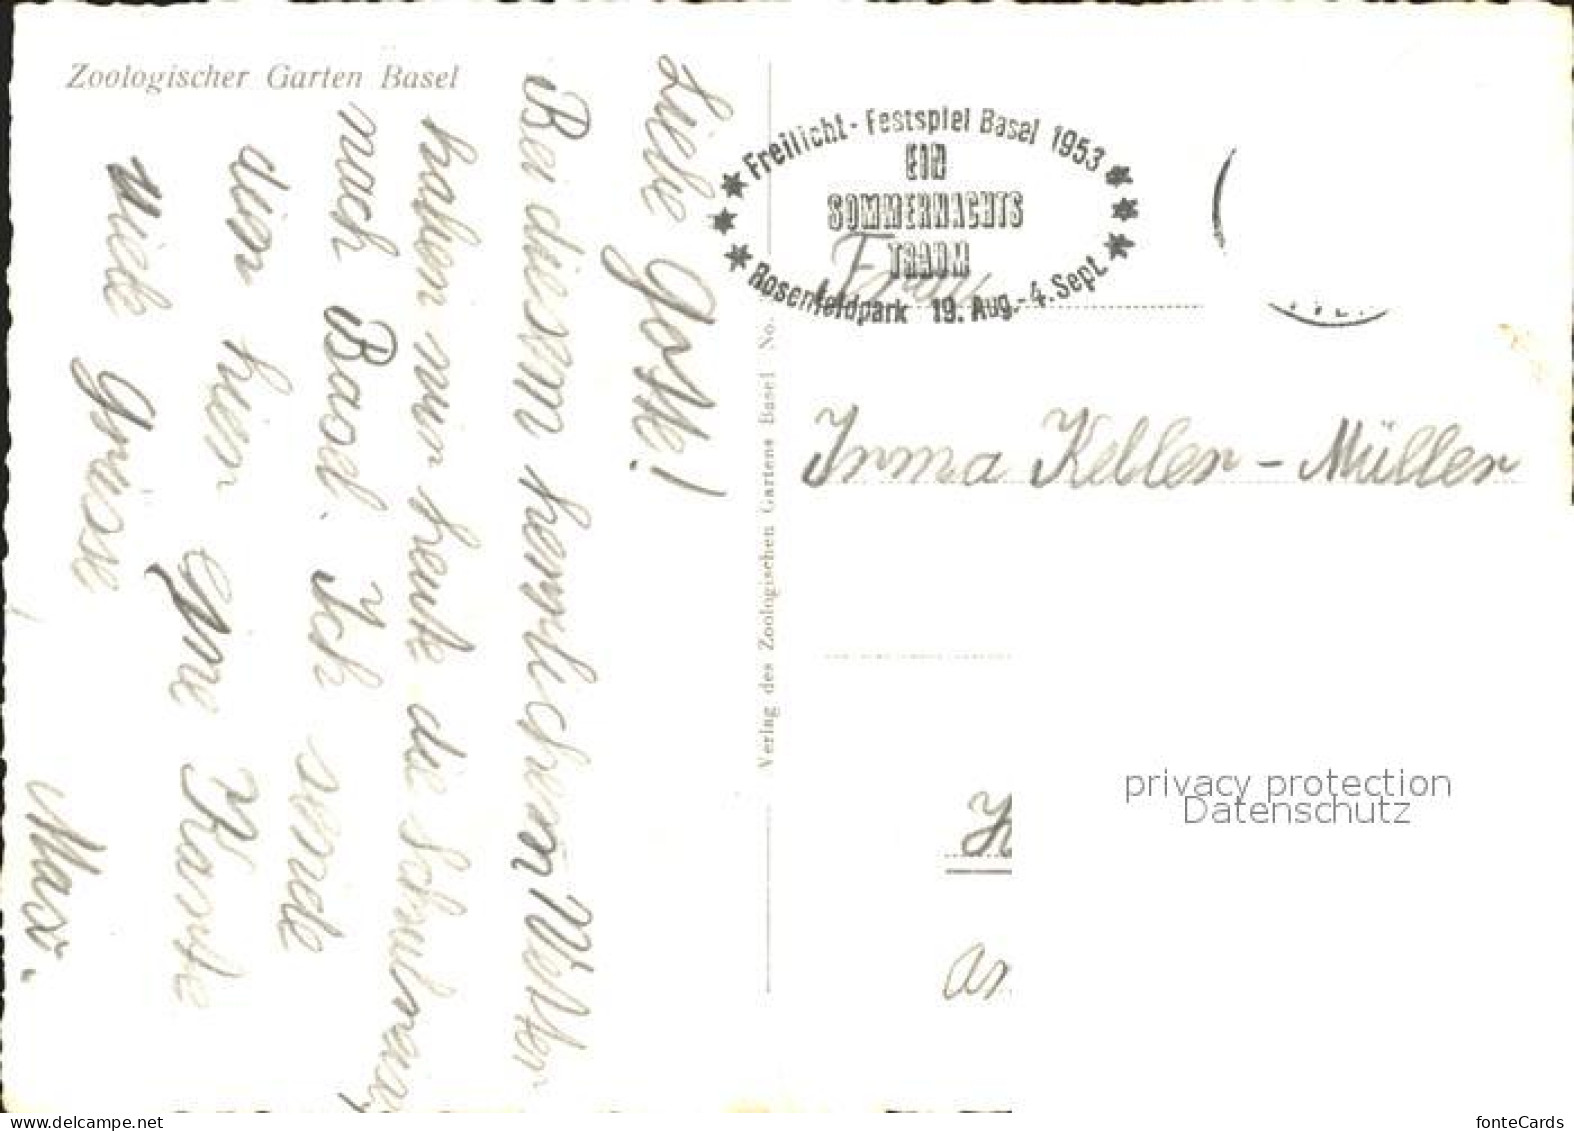 Zoologischer Garten Basel
Liebe Gotte!
Bei diesem herrlichem Wetter
haben wir heute die Schulreise
nach Basel. Ich sende
dir hier eine Karte
viele Grüsse
Max.
Verlag des Zoologischen Gartens Basel No.
Freilicht-Festspiel Basel 1953
EIN
SOMMERNACHTS
TRAUM
Rosenfeldpark 19. Aug.-4. Sept.
Frau
Irma Keller-Müller
privacy protection
Datenschutz
fonteCards